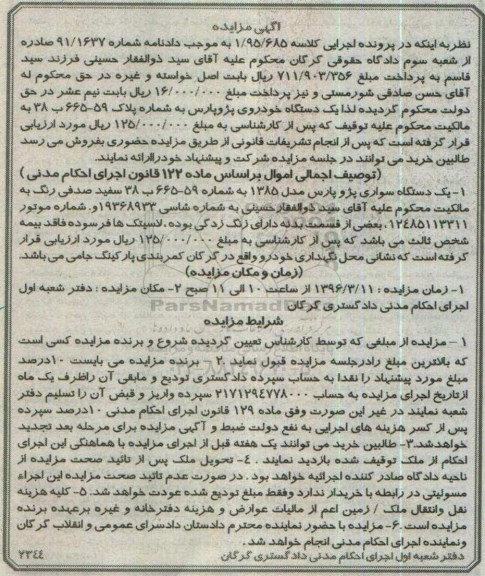 آگهی مزایده
نظر به اینکه در پرونده اجرایی کلاسه ۱/۹۵/۶۸۵ به موجب دادنامه شماره ۹۱/۱۶۳۷ صادره
از شعبه سوم دادگاه حقوقی گرگان محکوم علیه آقای سید ذوالفقار حسینی فرزند سید
قاسم به پرداخت مبلغ ۷۱۱/۹۰۳/۳۵۶ ریال بابت اصل خواسته و غیره در حق محکوم له
آقای حسن صادقی شورمستی و نیز پرداخت مبلغ ۱۶/۰۰۰/۰۰۰ ریال بابت نیم عشر در حق
دولت محکوم گردیده لذا یک دستگاه خودروی پژوپارس به شماره پلاک ۵۹-۶۶۵ ب ۳۸ به
مالکیت محکوم علیه توقیف که پس از کارشناسی به مبلغ ۱۲۵/۰۰۰/۰۰۰ ریال مورد ارزیابی
قرار گرفته است که پس از انجام تشریفات قانونی از طریق مزایده حضوری بفروش می رسد
طالبین خرید می توانند در جلسه مزایده شرکت و پیشنهاد خود را ارائه نمایند.
(توصیف اجمالی اموال براساس ماده ۱۲۲ قانون اجرای احکام مدنی )
۱- یک دستگاه سواری پژو پارس مدل ۱۳۸۵ به شماره ۵۹-۶۶۵ ب ۳۸ سفید صدفی رنگ به
مالکیت محکوم علیه آقای سید ذوالفقار حسینی به شماره شاسی ۱۹۳۶۸۹۳۳و. شماره موتور
۱۲۴۸۵۱۱۳۳۱۱، بعضی از قسمت بدنه دارای زنگ زدگی بوده ، لاستیک ها فرسوده فاقد بیمه
شخص ثالث می باشد که پس از کارشناسی به مبلغ ۱۲۵/۰۰۰/۰۰۰ ریال مورد ارزیابی قرار
گرفته است که نشانی محل نگهداری خودرو واقع در گرگان کمربندی پارکینگ جامی می باشد.
(زمان و مکان مزایده)
۱- زمان مزایده : ۱۳۹۶/۳/۱۱ از ساعت ۱۰ الی ۱۱ صبح ۲- مکان مزایده : دفتر شعبه اول
اجرای احکام مدنی دادگستری گرگان
شرایط مزایده
۱ – مزایده از مبلغی که توسط کارشناس تعیین گردیده شروع و برنده مزایده کسی است
که بالاترین مبلغ را در جلسه مزایده قبول نماید . ۲ - برنده مزایده می بایست ۱۰درصد
مبلغ مورد پیشنهاد را نقدا به حساب سپرده دادگستری تودیع و مابقی آن را ظرف یک ماه
از تاریخ اجرای مزایده به حساب ۲۱۷۱۲۹۴۷۷۸۰۰۰ سپرده واریز و قبض آن را تسلیم دفتر
شعبه نمایند در غیر این صورت وفق ماده ۱۲۹ قانون اجرای احکام مدنی ۱۰درصد سپرده
پس از کسر هزینه های اجرایی به نفع دولت ضبط و آگهی مزایده برای مرحله بعد تجدید
خواهدشد. ۳- طالبین خرید می توانند یک هفته قبل از اجرای مزایده با هماهنگی این اجرای
احکام از ملک توقیف شده بازدید نمایند . ۴- تحویل ملک پس از تائید صحت مزایده از
ناحیه دادگاه صادر کننده اجرائیه خواهد بود . در صورت عدم تائید صحت مزایده این اجراء
مسولیتی در رابطه با خریدار ندارد وفقط مبلغ تودیع شده عودت خواهد شد. ۵- کلیه هزینه
نقل وانتقال ملک / زمین اعم از مالیات عوارض و هزینه دفترخانه و غیره برعهده برنده
مزایده است . ۶- مزایده با حضور نماینده محترم دادستان دادسرای عمومی و انقلاب گرگان
ونماینده اجرای احکام مدنی انجام خواهد شد .
دفتر شعبه اول اجرای احکام مدنی دادگستری گرگان
۲۳۴۴
ParsNamadData